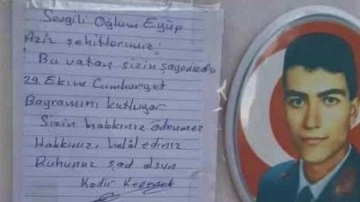 Sevgili Oğlum Eyüp
Aziz şehitlerimiz;
Bu vatan sizin sayenizde
29. Ekim Cumhuriyet
Bayramını kutluyor
Sizin hakkınız ödenmez
Hakkınızı helal ediniz
Ruhunuz şad olsun
Kadir